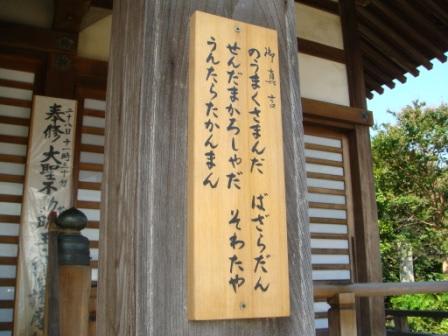 御真言
のうまくさまんだ ばざらだん
せんだまかろしゃだ そわたや
うんたらたかんまん
二十八日十一時三十分
奉修 大聖不動明王